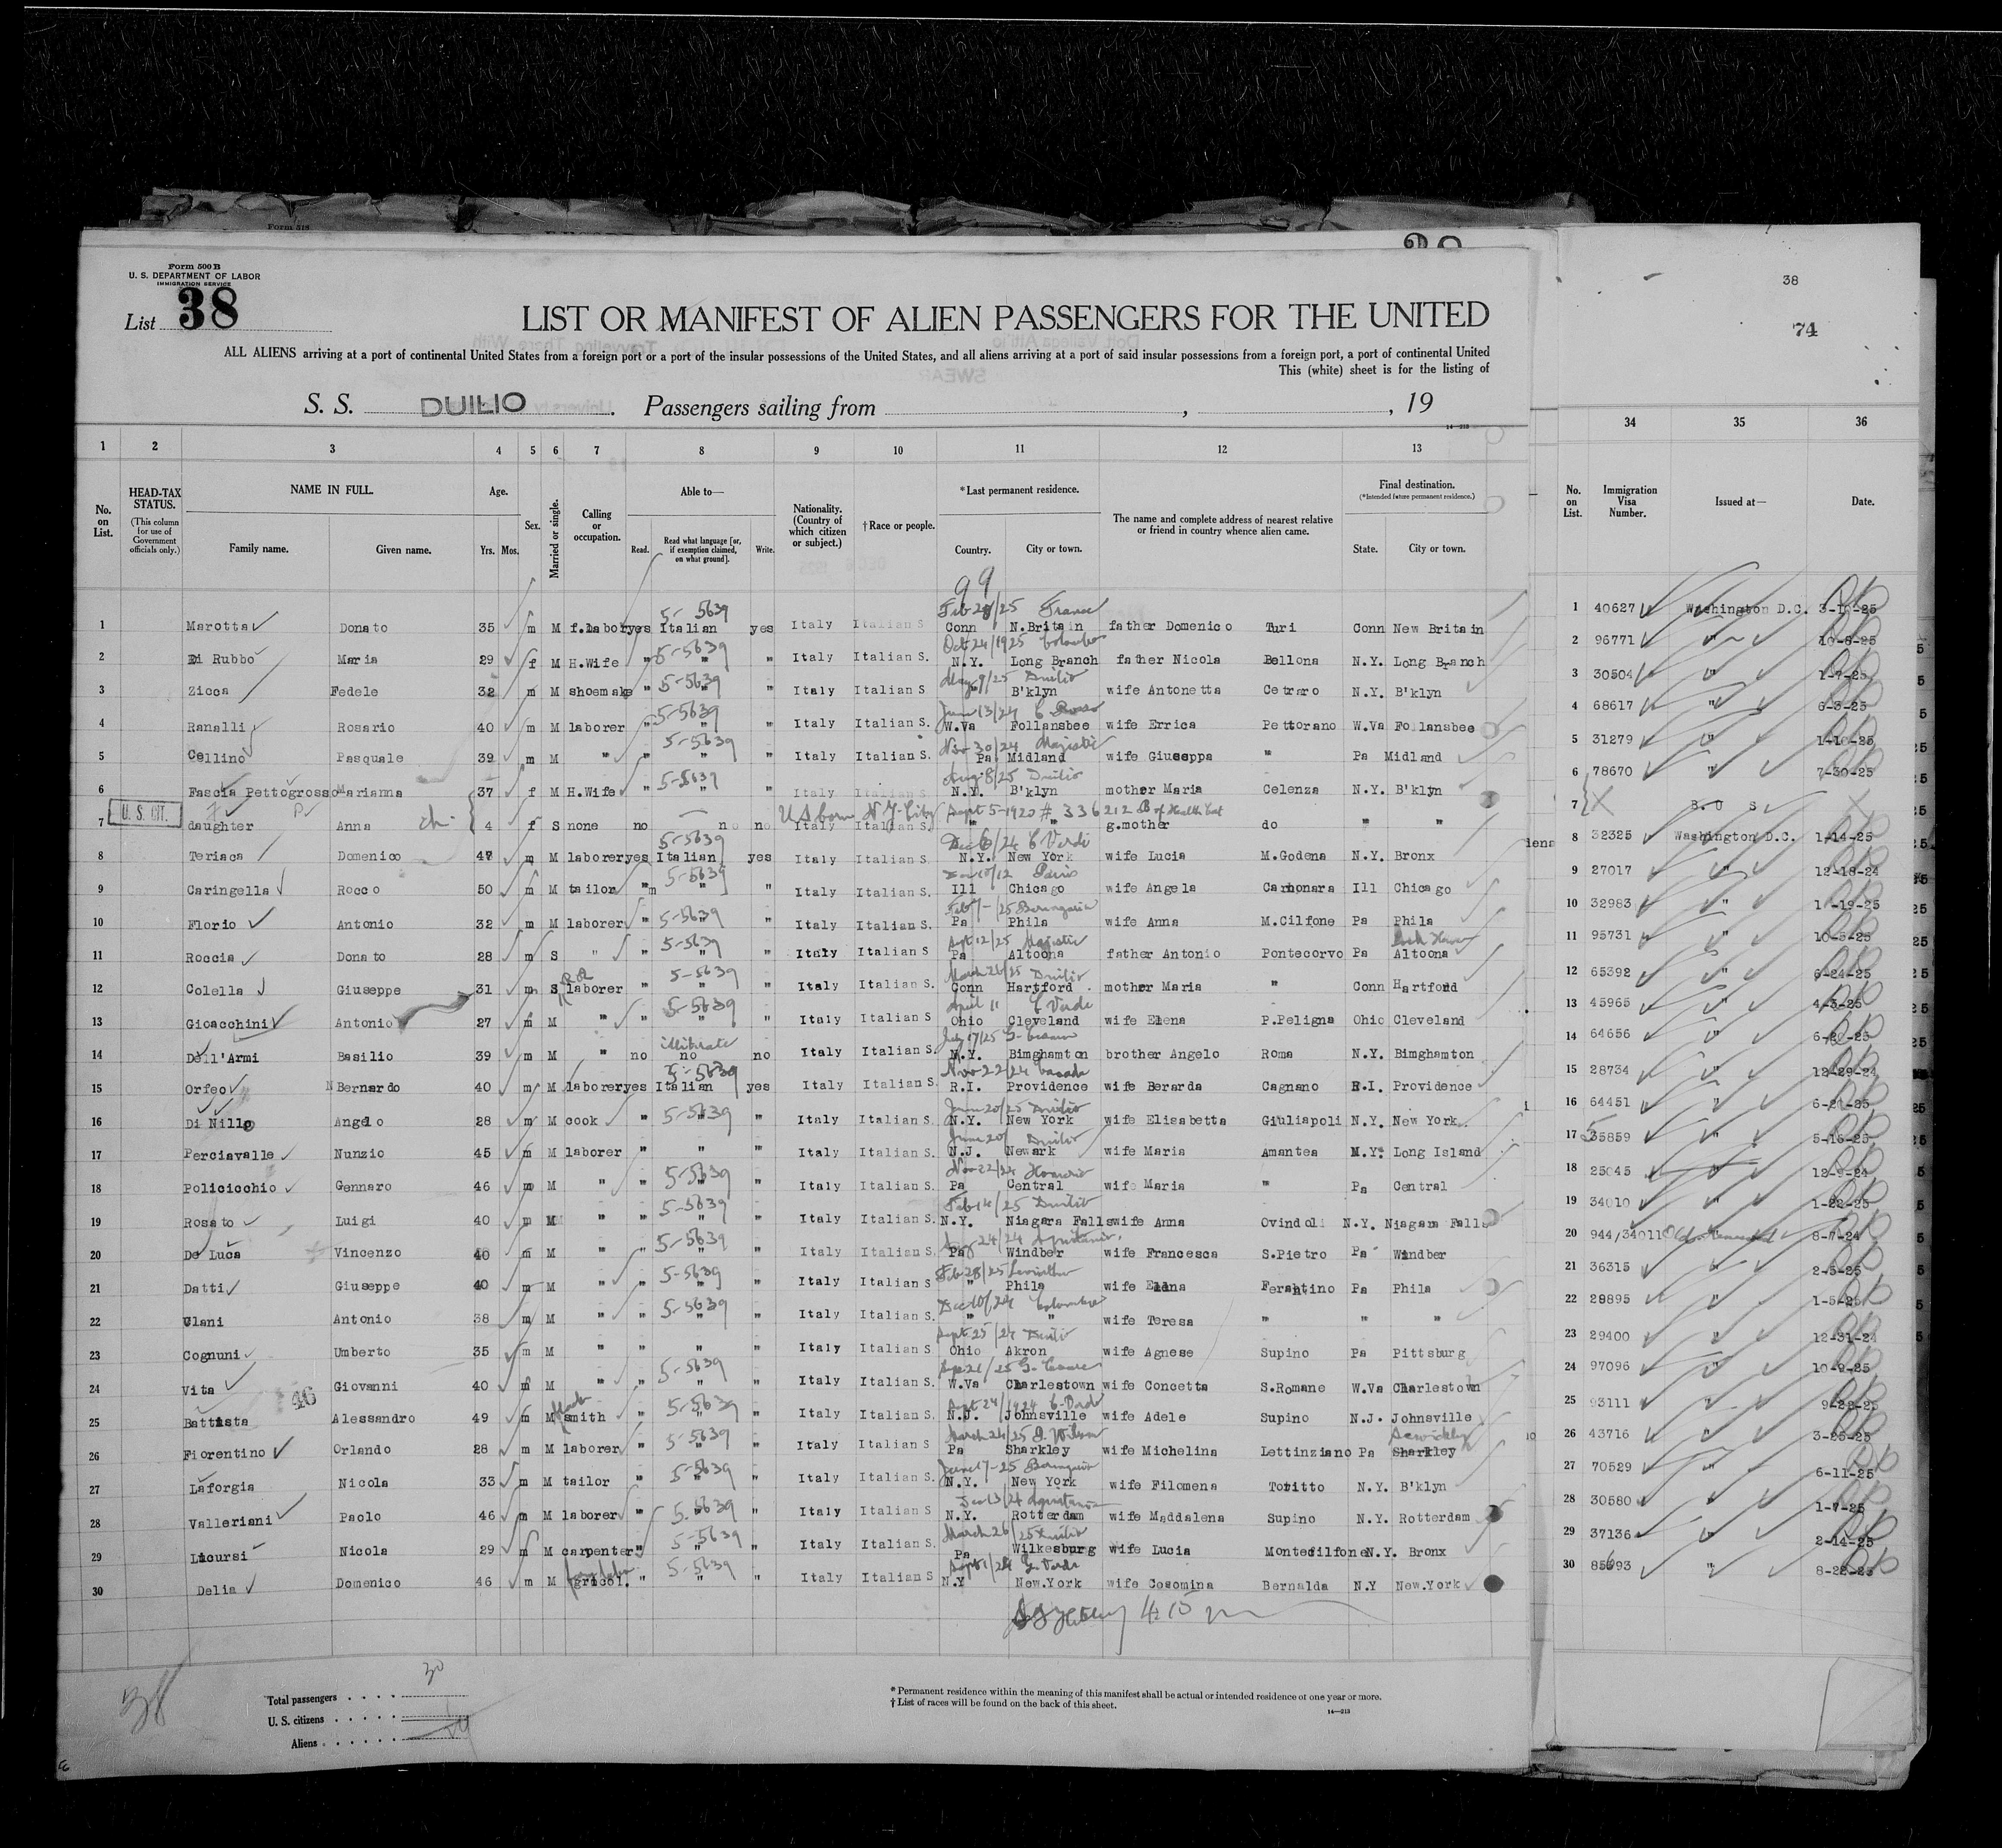 Form 500 B
U. S. DEPARTMENT OF LABOR
IMMIGRATION SERVICE
List 38
LIST OR MANIFEST OF ALIEN PASSENGERS FOR THE UNITED
ALL ALIENS arriving at a port of continental United States from a foreign port or a port of the insular possessions of the United States, and all aliens arriving at a port of said insular possessions from a foreign port, a port of continental United
This (white) sheet is for the listing of
S. S. DUILIO. Passengers sailing from , , 19
14—213
38
74
1 2 3 4 5 6 7 8 9 10 11 12 13 34 35 36
No. on List. HEAD-TAX STATUS. (This column for use of Government officials only.) NAME IN FULL. Family name. Given name. Age. Yrs. Mos. Sex. Married or single. Calling or occupation. Able to— Read. Read what language [or, if exemption claimed, on what ground]. Write. Nationality. (Country of which citizen or subject.) †Race or people. *Last permanent residence. Country. City or town. The name and complete address of nearest relative or friend in country whence alien came. Final destination. (*Intended future permanent residence.) State. City or town. No. on List. Immigration Visa Number. Issued at— Date.
99
5-5639 Feb 28/25 France
1 Marotta Donato 35 m M f.labor yes Italian yes Italy Italian S Conn N.Britain father Domenico Turi Conn New Britain 1 40627 Washington D.C. 3-10-25
5-5639 Oct 24/1925 Colombo
2 Di Rubbo Maria 29 f M H.Wife " " " Italy Italian S. N.Y. Long Branch father Nicola Bellona N.Y. Long Branch 2 96771 " 10-8-25
5-5639 May 9/25 Duilio
3 Zicca Fedele 32 m M shoemake " " " Italy Italian S " B'klyn wife Antonetta Cetraro N.Y. B'klyn 3 30504 " 1-7-25
5-5639 June 13/24 C Rosso
4 Ranalli Rosario 40 m M laborer " " " Italy Italian S. W.Va Follansbee wife Errica Pettorano W.Va Follansbee 4 68617 " 6-3-25
5-5639 Nov 30/24 Majestic
5 Cellino Pasquale 39 m M " " " " Italy Italian S. Pa Midland wife Giuseppa " Pa Midland 5 31279 " 1-10-25
5-5639 Aug 8/25 Duilio
6 Fascia Pettogrosso Marianna 37 f M H.Wife " " " Italy Italian S. N.Y. B'klyn mother Maria Celenza N.Y. B'klyn 6 78670 " 7-30-25
U. S. CIT. US born N.Y. City Sept 5-1920 # 336212 B of Health Cert
7 daughter Anna 4 f S none no no no Italy Italian S. " " g.mother do " " 7
5-5639 Dec 6/24 C Verde
8 Teriaca Domenico 47 m M laborer yes Italian yes Italy Italian S. N.Y. New York wife Lucia M.Godena N.Y. Bronx 8 32325 Washington D.C. 1-14-25
5-5639 Paris
9 Caringella Rocco 50 m M tailor " " " Italy Italian S. Ill Chicago wife Angela Carbonara Ill Chicago 9 27017 " 12-18-24
5-5639 Feb 7-/25 Berengaria
10 Florio Antonio 32 m M laborer " " " Italy Italian S. Pa Phila wife Anna M.Cilfone Pa Phila 10 32983 " 1-19-25
5-5639 Sept 12/25 Majestic Lock Haven
11 Roccia Donato 28 m S " " " " Italy Italian S Pa Altoona father Antonio Pontecorvo Pa Altoona 11 95731 " 10-5-25
RR 5-5639 March 26/25 Duilio
12 Colella Giuseppe 31 m S laborer " " " Italy Italian S. Conn Hartford mother Maria " Conn Hartford 12 65392 " 6-24-25
5-5639 April 11 C Verde
13 Gioacchini Antonio 27 m M " " " " Italy Italian S Ohio Cleveland wife Elena P.Peligna Ohio Cleveland 13 45965 " 4-3-25
illiterate July 17/25 G. Cesare
14 Dell'Armi Basilio 39 m M " no no no Italy Italian S. N.Y. Bimghamton brother Angelo Roma N.Y. Bimghamton 14 64656 " 6-20-25
5-5639 Nov 22/24 Canada
15 Orfeo Bernardo 40 m M laborer yes Italian yes Italy Italian S. R.I. Providence wife Berarda Cagnano R.I. Providence 15 28734 " 12-29-24
5-5639 June 20/25 Duilio
16 Di Nillo Angelo 28 m M cook " " " Italy Italian S. N.Y. New York wife Elisabetta Giuliapoli N.Y. New York. 16 64451 " 6-20-25
June 20/ Duilio
17 Perciavalle Nunzio 45 m M laborer " " " Italy Italian S. N.J. Newark wife Maria Amantea N.Y. Long Island 17 55859 " 5-16-25
5-5639 Nov 22/24
18 Policicchio Gennaro 46 m M " " " " Italy Italian S. Pa Central wife Maria " Pa Central 18 25045 " 12-9-24
5-5639 Feb 14/25 Duilio
19 Rosato Luigi 40 m M " " " " Italy Italian S. N.Y. Niagara Falls wife Anna Ovindoli N.Y. Niagara Falls 19 34010 " 1-22-25
5-5639 Aug 24/24 Aquitania
20 De Luca Vincenzo 40 m M " " " " Italy Italian S. Pa Windber wife Francesca S.Pietro Pa Windber 20 944/34011 8-7-24
5-5639 Feb 28/25 Leviathan
21 Datti Giuseppe 40 m M " " " " Italy Italian S " Phila wife Elena Ferentino Pa Phila 21 36315 " 2-5-25
5-5639 Dec 10/24 Colombo
22 Ulani Antonio 38 m M " " " " Italy Italian S. " " wife Teresa " " " 22 29895 " 1-5-25
Sept 25/24 Duilio
23 Cognuni Umberto 35 m M " " " " Italy Italian S Ohio Akron wife Agnese Supino Pa Pittsburg 23 29400 " 12-31-24
5-5639 Sep 21/25 G. Cesare
24 Vita Giovanni 40 m M " " " " Italy Italian S. W.Va Charlestown wife Concetta S.Romane W.Va Charlestown 24 97096 " 10-9-25
46 black 5-5639 Sept 24/1924 C. Verde
25 Battista Alessandro 49 m M smith " " " Italy Italian S. N.J. Johnsville wife Adele Supino N.J. Johnsville 25 93111 " 9-22-25
5-5639 March 24/25 P. Wilson Sewickley
26 Fiorentino Orlando 28 m M laborer " " " Italy Italian S Pa Sharkley wife Michelina Lettinziano Pa Sharkley 26 43716 " 3-25-25
5-5639 June 17-25 Berengaria
27 Laforgia Nicola 33 m M tailor " " " Italy Italian S. N.Y. New York wife Filomena Toritto N.Y. B'klyn 27 70529 " 6-11-25
5-5639 Dec 13/24 Aquitania
28 Valleriani Paolo 46 m M laborer " " " Italy Italian S N.Y. Rotterdam wife Maddalena Supino N.Y. Rotterdam 28 30580 1-7-25
5-5639 March 26/25 Duilio
29 Licursi Nicola 29 m M carpenter " " " Italy Italian S. Pa Wilkesburg wife Lucia Montesilfone N.Y. Bronx 29 37136 " 2-14-25
5-5639 Sept 1/24 C. Verde
30 Delia Domenico 46 m M gricol. " " " Italy Italian S N.Y New.York wife Cosomina Bernalda N.Y New.York 30 85693 " 8-22-25
38
Total passengers . . . . 30
U. S. citizens . . . . . 1
Aliens . . . . . . 29
* Permanent residence within the meaning of this manifest shall be actual or intended residence of one year or more.
† List of races will be found on the back of this sheet.
14—213